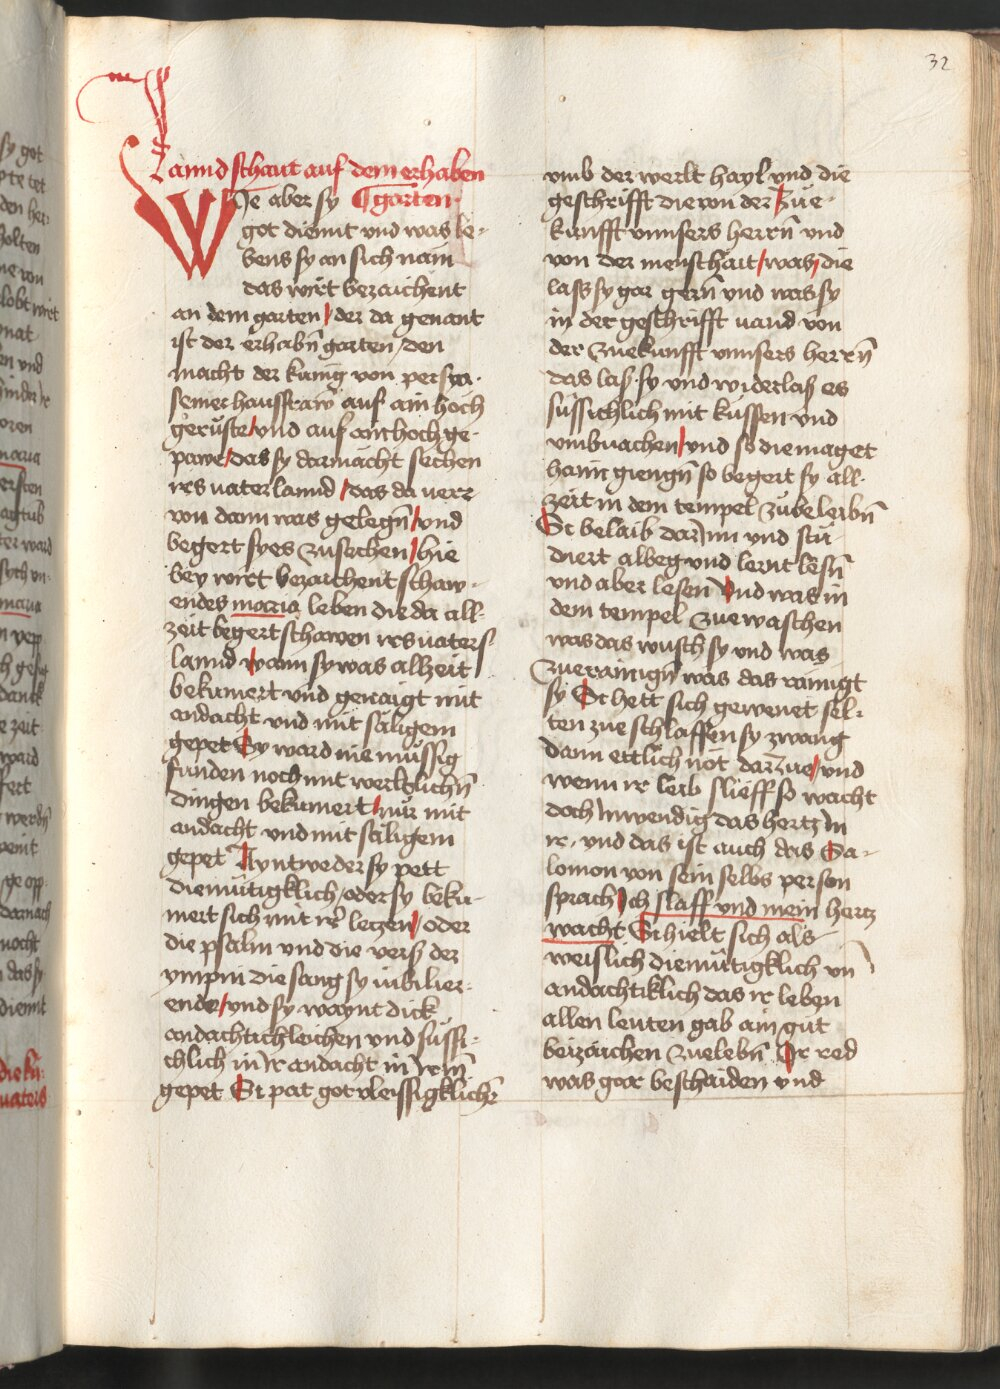 32
lannd schaut auf dem erhaben
Wie aber sy garten
got diennt und was le-
bens sy an sich nam
das wirt bezaichent
an dem garten / der da genant
ist der erhabn̄ garten / den
macht der kunig von persya
seiner hausfraw auf ain hoch
gerüste / und auf ain hoch ge-
pawe / das sy darnacht sechen
irs vater lannd / das da verr
von dann was gelegn̄ / und
begert sy es zu sechen / hie
bey wirt bezaichent schaw-
endes maria leben die da all-
zeit begert schawen irs vaters
lannd wann sy was allzeit
bekumert und genaigt mit
andacht und mit säligem
gepet Sy ward nie müssig
funden noch mit werltlichn̄
dingen bekumert / nur mit
andacht und mit säligem
gepet Ayntweder sy pett
diemütigklich / oder sy beku-
mert sich mit ir letzen / oder
die psalm und die vers der
ympni die sang sy iubilier-
ende / und sy waynt dick
andachtichleichen und süssi-
chlich in ir andacht in irm̄
gepet Si pat got vleissigklichn̄
umb der werlt hayl und die
geschrifft die von der zue-
kunfft unnsers herrn̄ und
von der menschait / was / die
lass sy gar gern̄ und was sy
in der geschrifft vand von
der zuekunfft unnsers herrn̄
das lass sy und widerlass es
süssichlich mit küssen und
umbvachen / und so die maget
haim giengn̄ so begert sy all-
zeit in dem tempel zubeleibn̄
Si belaib darinn und stu-
diert albeg und lernt lesn̄
und aber lesen Und was in
dem tempel zue waschen
was das wusch sy und was
zuerainign̄ was das rainigt
sy Si hett sich gewenet sel-
ten zue schlaffen sy zwang
dann ettlich not darzue / und
wenn ir leib slieff so wacht
doch inwendig das hertz in
ir. und das ist auch das Sa-
lomon von sein selbs person
sprach Ich slaff und mein hertz
wacht Si hielt sich als
weislich diemütigklich un̄
andachtiklich das ir leben
allen leuten gab ain gut
beizaichen zuelebn̄ Ir red
was gar beschaiden und